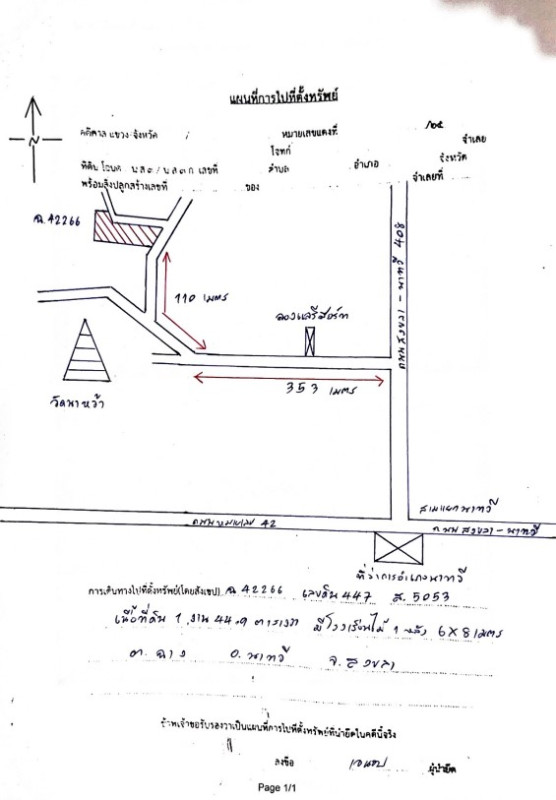 แผนที่การไปที่ตั้งทรัพย์
คดีศาล แขวง/จังหวัด หมายเลขแดงที่ /๒๕
โจทก์ จำเลย
ที่ดิน โฉนด น.ส.๓ / น.ส.๓ ก. เลขที่ ตำบล อำเภอ จังหวัด
พร้อมสิ่งปลูกสร้างเลขที่ ของ จำเลยที่
N
ฉ. 42266
110 เมตร
ถนนสงขลา - นาทวี 408
353 เมตร
วัดนาหว้า
สามแยกนาทวี
ถนน 42
ถนนสงขลา - นาทวี
ที่ว่าการอำเภอนาทวี
การเดินทางไปที่ตั้งทรัพย์(โดยสังเขป) ฉ. 42266 เลขดิน 447 ส. 5053
เนื้อที่ดิน 1 งาน 44.9 ตารางวา มีโรงเรือนไม้ 1 หลัง 6 X 8 เมตร
ต. ฉาง อ. นาทวี จ. สงขลา
ข้าพเจ้าขอรับรองว่าเป็นแผนที่การไปที่ตั้งทรัพย์ที่นำยึดในคดีนี้จริง
ลงชื่อ ผู้นำยึด
Page 1/1